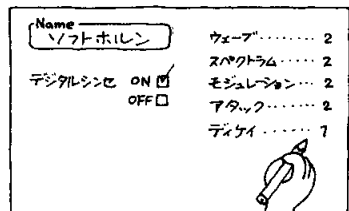 Name
ソフトホルン
デジタルシンセ ON ☑
OFF □
ウェーブ········ 2
スペクトラム···· 2
モジュレーション··· 2
アタック······· 2
ディケイ······· 7